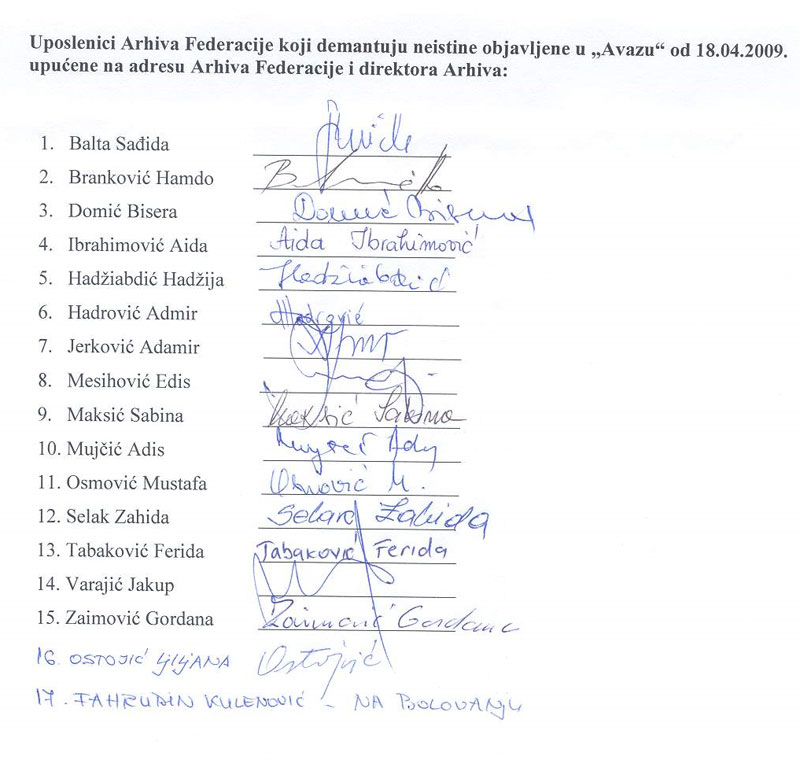 Uposlenici Arhiva Federacije koji demantuju neistine objavljene u „Avazu“ od 18.04.2009.
upućene na adresu Arhiva Federacije i direktora Arhiva:
1. Balta Sađida
2. Branković Hamdo
3. Domić Bisera Domić Bisera
4. Ibrahimović Aida Aida Ibrahimović
5. Hadžiabdić Hadžija Hadžiabdić
6. Hadrović Admir Hadrović
7. Jerković Adamir
8. Mesihović Edis
9. Maksić Sabina Maksić Sabina
10. Mujčić Adis
11. Osmović Mustafa Osmović M.
12. Selak Zahida Selak Zahida
13. Tabaković Ferida Tabaković Ferida
14. Varajić Jakup
15. Zaimović Gordana Zaimović Gordana
16. OSTOJIĆ LJILJANA Ostojić
17. FAHRUDIN KULENOVIĆ – NA BOLOVANJU